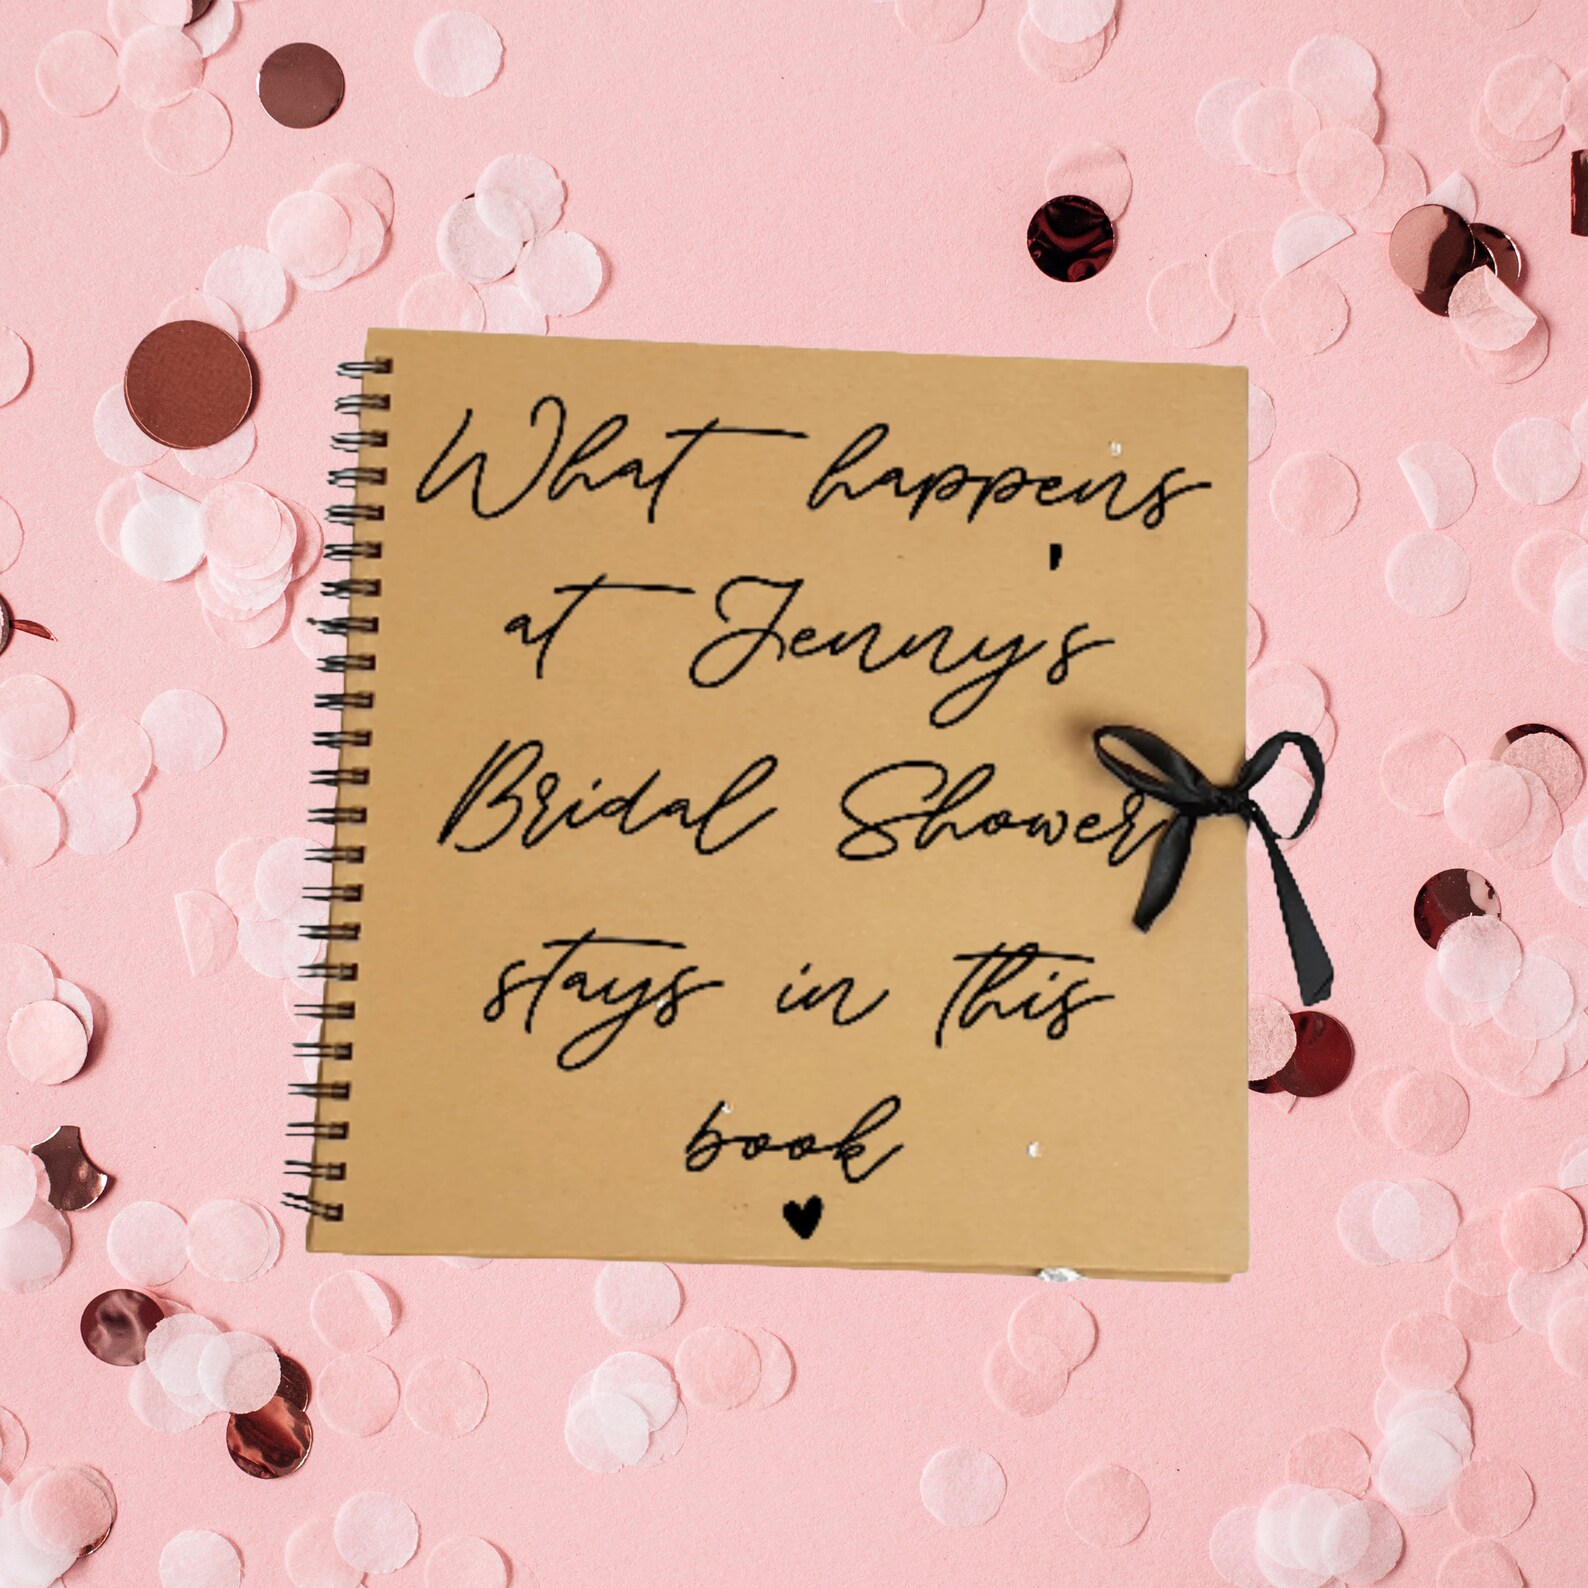 What happens
at Jenny's
Bridal Shower
stays in this
book